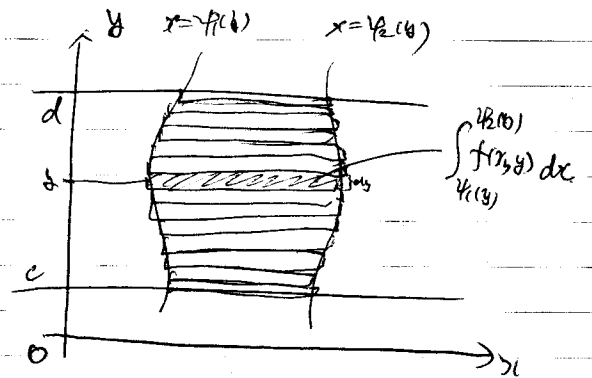 y
x=ψ₁(y)
x=ψ₂(y)
d
y
dy
∫_{ψ₁(y)}^{ψ₂(y)} f(x,y) dx
c
O
x